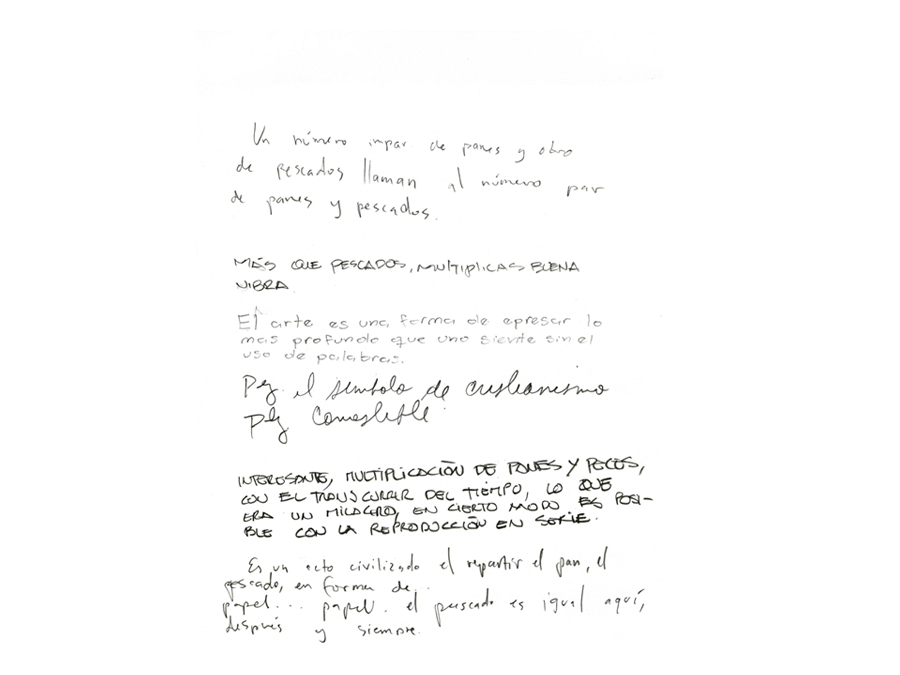 Un número impar de panes y otro
de pescados llaman al número par
de panes y pescados.
MÁS QUE PESCADOS, MULTIPLICAS BUENA
VIBRA
El arte es una forma de epresar lo
mas profundo que uno siente sin el
uso de palabras.
Pez. el símbolo de cristianismo
Pez comestible.
INTERESANTE, MULTIPLICACIÓN DE PANES Y PECES,
CON EL TRANSCURRIR DEL TIEMPO, LO QUE
ERA UN MILAGRO, EN CIERTO MODO ES POSI-
BLE CON LA REPRODUCCIÓN EN SERIE.
Es un acto civilizado el repartir el pan, el
pescado, en forma de...
papel... papel. el pescado es igual aquí,
después y siempre.